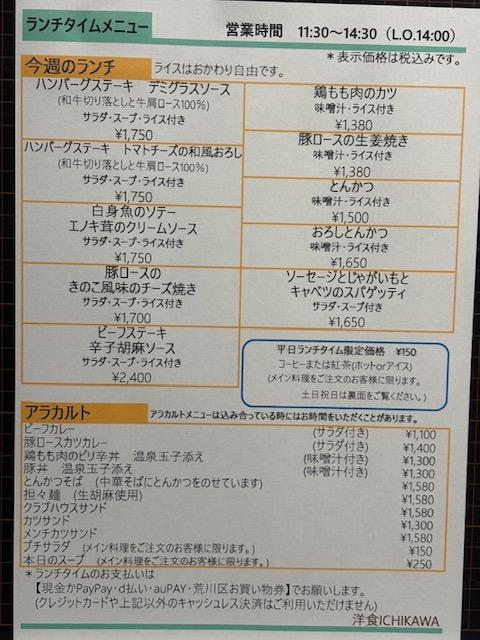 ランチタイムメニュー
営業時間　11:30～14:30（L.O.14:00）
＊表示価格は税込みです。
今週のランチ　ライスはおかわり自由です。
ハンバーグステーキ　デミグラスソース
(和牛切り落としと牛肩ロース100%)
サラダ・スープ・ライス付き
¥1,750
ハンバーグステーキ　トマトチーズの和風おろし
(和牛切り落としと牛肩ロース100%)
サラダ・スープ・ライス付き
¥1,750
白身魚のソテー
エノキ茸のクリームソース
サラダ・スープ・ライス付き
¥1,750
豚ロースの
きのこ風味のチーズ焼き
サラダ・スープ・ライス付き
¥1,700
ビーフステーキ
辛子胡麻ソース
サラダ・スープ・ライス付き
¥2,400
鶏もも肉のカツ
味噌汁・ライス付き
¥1,380
豚ロースの生姜焼き
味噌汁・ライス付き
¥1,380
とんかつ
味噌汁・ライス付き
¥1,500
おろしとんかつ
味噌汁・ライス付き
¥1,650
ソーセージとじゃがいもと
キャベツのスパゲッティ
サラダ・スープ付き
¥1,650
平日ランチタイム限定価格　¥150
コーヒーまたは紅茶(ホットorアイス)
(メイン料理をご注文のお客様に限ります。
土日祝日は裏面をご覧ください。)
アラカルト　アラカルトメニューは込み合っている時にはお時間をいただくことがあります。
ビーフカレー　(サラダ付き)　¥1,100
豚ロースカツカレー　(サラダ付き)　¥1,400
鶏もも肉のピリ辛丼　温泉玉子添え　(味噌汁付き)　¥1,300
豚丼　温泉玉子添え　(味噌汁付き)　¥1,300
とんかつそば　(中華そばにとんかつをのせています)　¥1,580
担々麺　(生胡麻使用)　¥1,580
クラブハウスサンド　¥1,580
カツサンド　¥1,300
メンチカツサンド　¥1,580
プチサラダ　(メイン料理をご注文のお客様に限ります。)　¥150
本日のスープ　(メイン料理をご注文のお客様に限ります。)　¥250
＊ランチタイムのお支払いは
【現金かPayPay・d払い・auPAY・荒川区お買い物券】でお願いします。
(クレジットカードや上記以外のキャッシュレス決済はご利用いただけません)
洋食ICHIKAWA